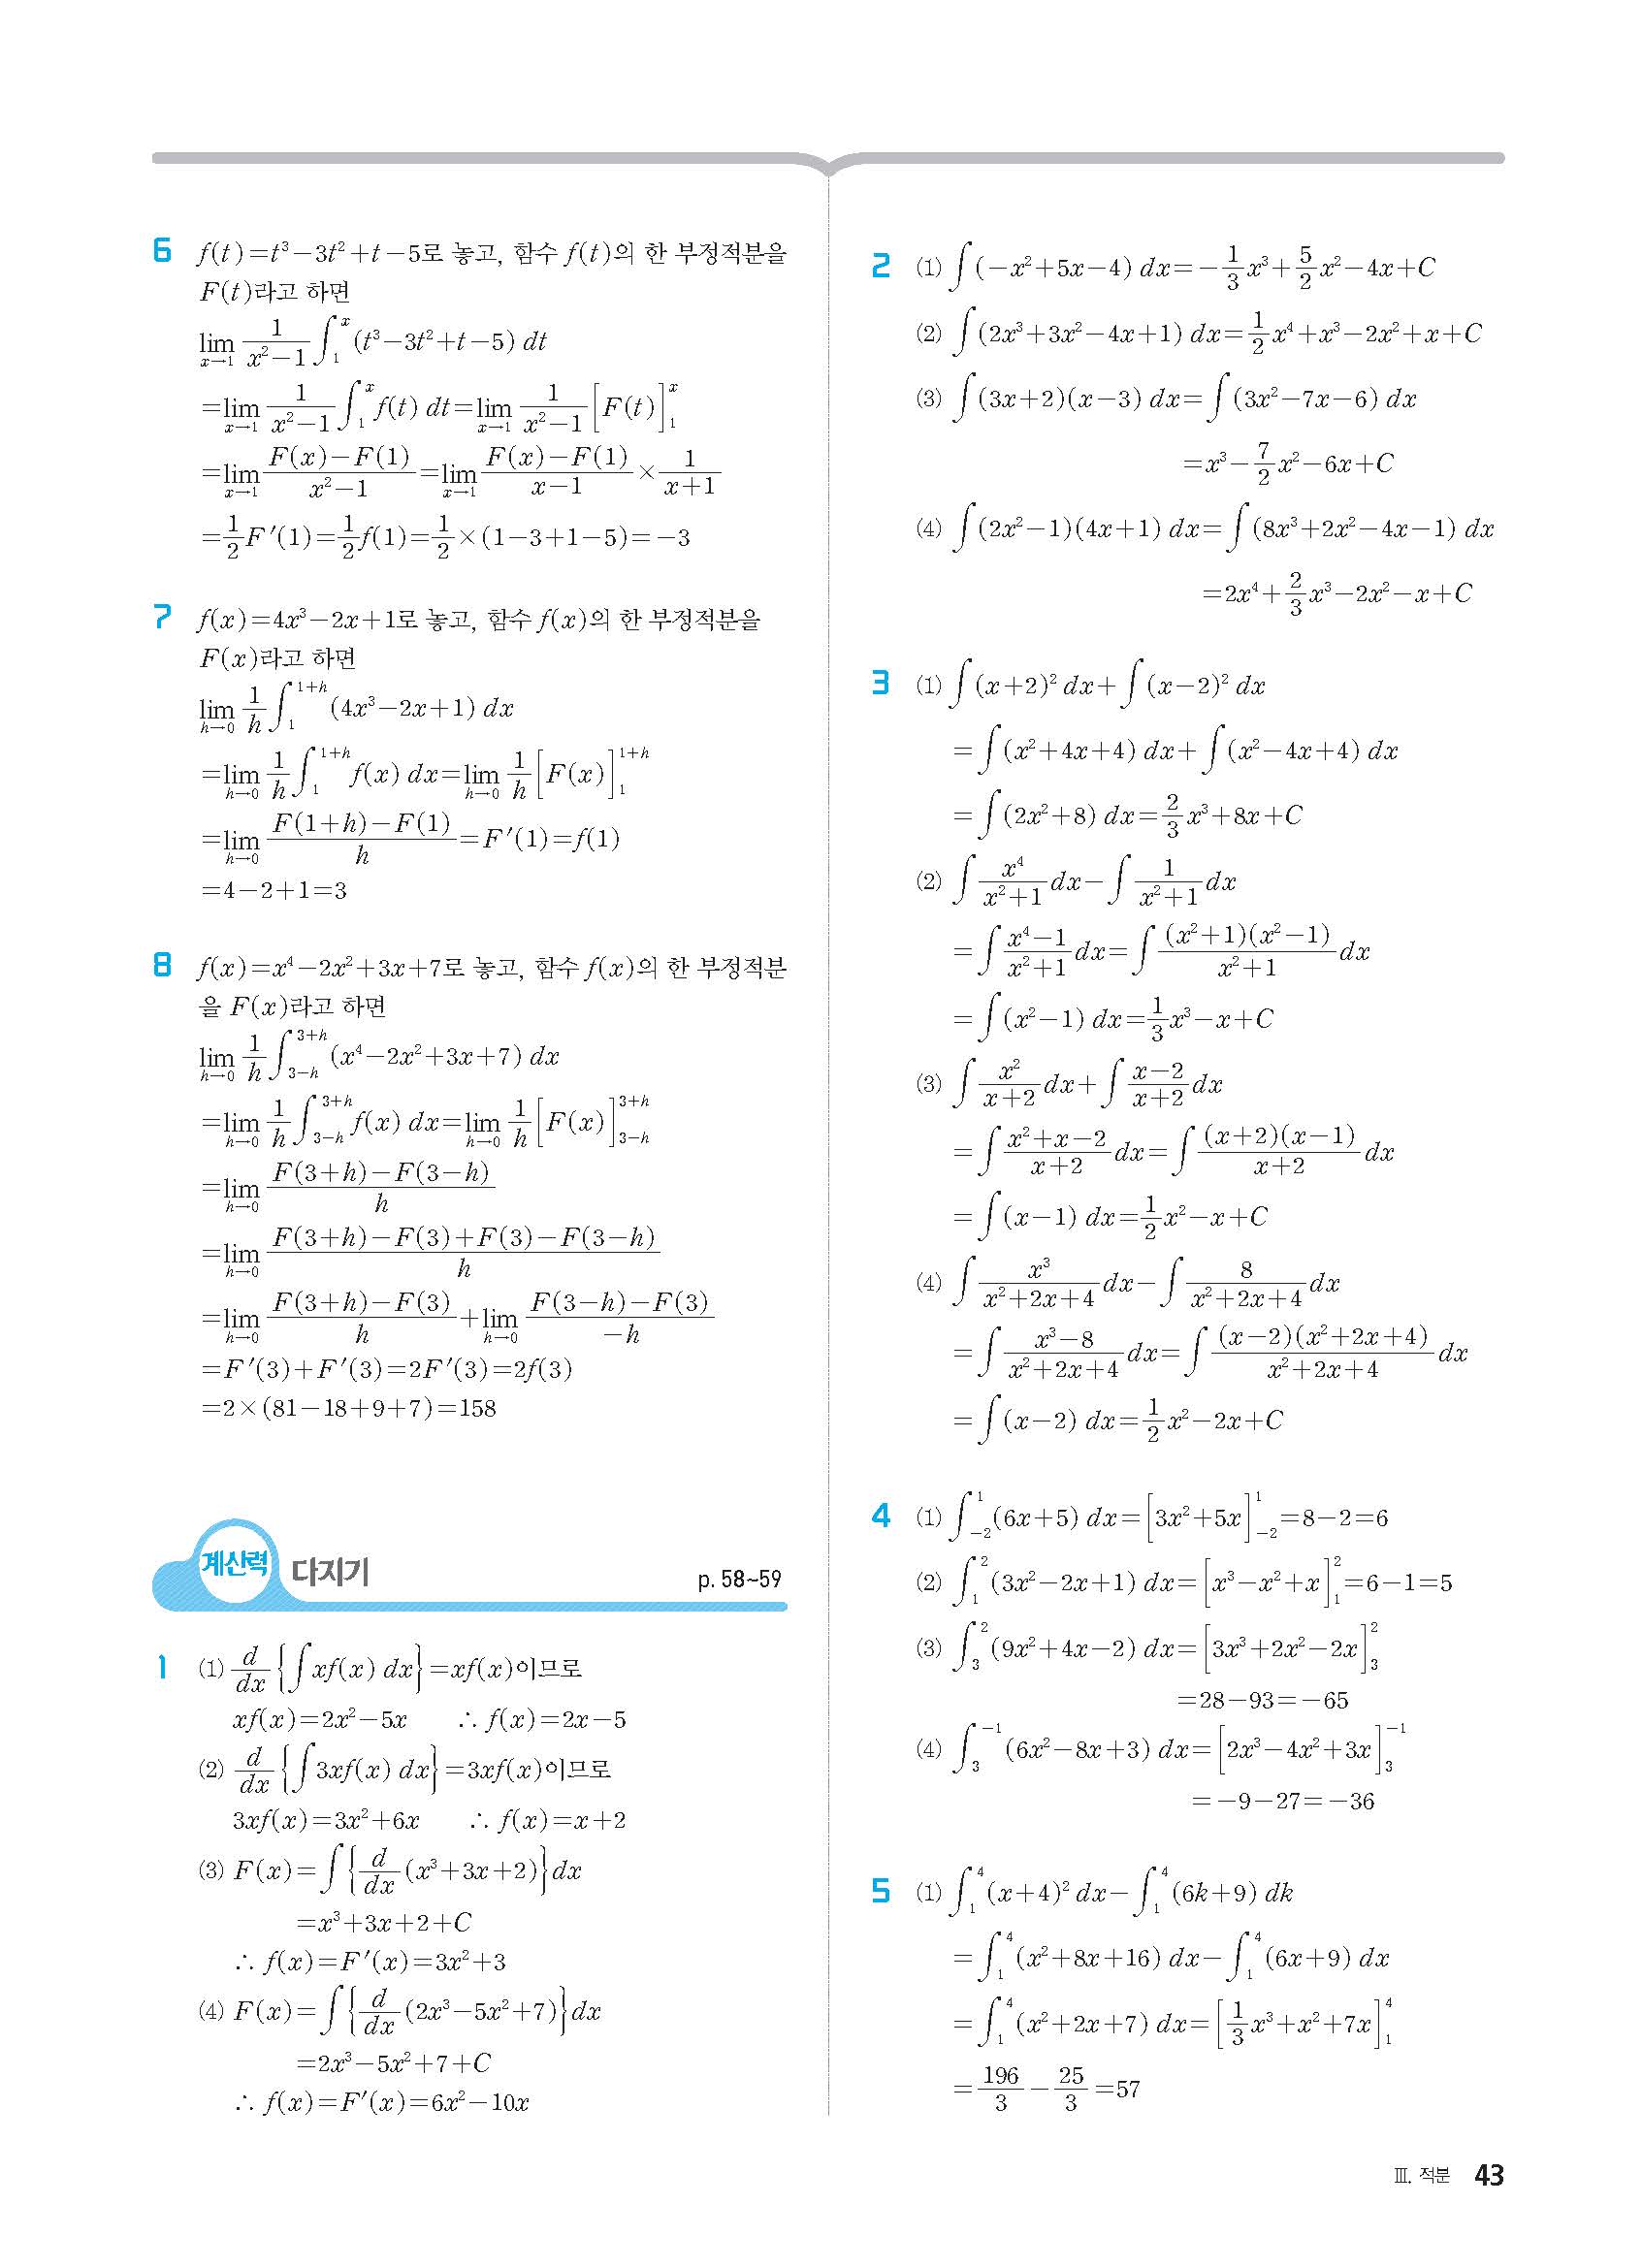 6 f(t)=t³-3t²+t-5로 놓고, 함수 f(t)의 한 부정적분을
F(t)라고 하면
lim_{x→1} 1/(x²-1) ∫_1^x (t³-3t²+t-5) dt
=lim_{x→1} 1/(x²-1) ∫_1^x f(t) dt=lim_{x→1} 1/(x²-1) [F(t)]_1^x
=lim_{x→1} (F(x)-F(1))/(x²-1)=lim_{x→1} (F(x)-F(1))/(x-1)×1/(x+1)
=1/2 F′(1)=1/2 f(1)=1/2×(1-3+1-5)=-3
7 f(x)=4x³-2x+1로 놓고, 함수 f(x)의 한 부정적분을
F(x)라고 하면
lim_{h→0} 1/h ∫_1^{1+h} (4x³-2x+1) dx
=lim_{h→0} 1/h ∫_1^{1+h} f(x) dx=lim_{h→0} 1/h [F(x)]_1^{1+h}
=lim_{h→0} (F(1+h)-F(1))/h=F′(1)=f(1)
=4-2+1=3
8 f(x)=x⁴-2x²+3x+7로 놓고, 함수 f(x)의 한 부정적분
을 F(x)라고 하면
lim_{h→0} 1/h ∫_{3-h}^{3+h} (x⁴-2x²+3x+7) dx
=lim_{h→0} 1/h ∫_{3-h}^{3+h} f(x) dx=lim_{h→0} 1/h [F(x)]_{3-h}^{3+h}
=lim_{h→0} (F(3+h)-F(3-h))/h
=lim_{h→0} (F(3+h)-F(3)+F(3)-F(3-h))/h
=lim_{h→0} (F(3+h)-F(3))/h+lim_{h→0} (F(3-h)-F(3))/(-h)
=F′(3)+F′(3)=2F′(3)=2f(3)
=2×(81-18+9+7)=158
계산력 다지기 p. 58~59
1 ⑴ d/dx {∫xf(x) dx}=xf(x)이므로
xf(x)=2x²-5x ∴ f(x)=2x-5
⑵ d/dx {∫3xf(x) dx}=3xf(x)이므로
3xf(x)=3x²+6x ∴ f(x)=x+2
⑶ F(x)=∫{d/dx (x³+3x+2)}dx
=x³+3x+2+C
∴ f(x)=F′(x)=3x²+3
⑷ F(x)=∫{d/dx (2x³-5x²+7)}dx
=2x³-5x²+7+C
∴ f(x)=F′(x)=6x²-10x
2 ⑴ ∫(-x²+5x-4) dx=-1/3 x³+5/2 x²-4x+C
⑵ ∫(2x³+3x²-4x+1) dx=1/2 x⁴+x³-2x²+x+C
⑶ ∫(3x+2)(x-3) dx=∫(3x²-7x-6) dx
=x³-7/2 x²-6x+C
⑷ ∫(2x²-1)(4x+1) dx=∫(8x³+2x²-4x-1) dx
=2x⁴+2/3 x³-2x²-x+C
3 ⑴ ∫(x+2)² dx+∫(x-2)² dx
=∫(x²+4x+4) dx+∫(x²-4x+4) dx
=∫(2x²+8) dx=2/3 x³+8x+C
⑵ ∫x⁴/(x²+1) dx-∫1/(x²+1) dx
=∫(x⁴-1)/(x²+1) dx=∫(x²+1)(x²-1)/(x²+1) dx
=∫(x²-1) dx=1/3 x³-x+C
⑶ ∫x²/(x+2) dx+∫(x-2)/(x+2) dx
=∫(x²+x-2)/(x+2) dx=∫(x+2)(x-1)/(x+2) dx
=∫(x-1) dx=1/2 x²-x+C
⑷ ∫x³/(x²+2x+4) dx-∫8/(x²+2x+4) dx
=∫(x³-8)/(x²+2x+4) dx=∫(x-2)(x²+2x+4)/(x²+2x+4) dx
=∫(x-2) dx=1/2 x²-2x+C
4 ⑴ ∫_{-2}^1 (6x+5) dx=[3x²+5x]_{-2}^1=8-2=6
⑵ ∫_1^2 (3x²-2x+1) dx=[x³-x²+x]_1^2=6-1=5
⑶ ∫_3^2 (9x²+4x-2) dx=[3x³+2x²-2x]_3^2
=28-93=-65
⑷ ∫_3^{-1} (6x²-8x+3) dx=[2x³-4x²+3x]_3^{-1}
=-9-27=-36
5 ⑴ ∫_1^4 (x+4)² dx-∫_1^4 (6k+9) dk
=∫_1^4 (x²+8x+16) dx-∫_1^4 (6x+9) dx
=∫_1^4 (x²+2x+7) dx=[1/3 x³+x²+7x]_1^4
=196/3-25/3=57
Ⅲ. 적분 43